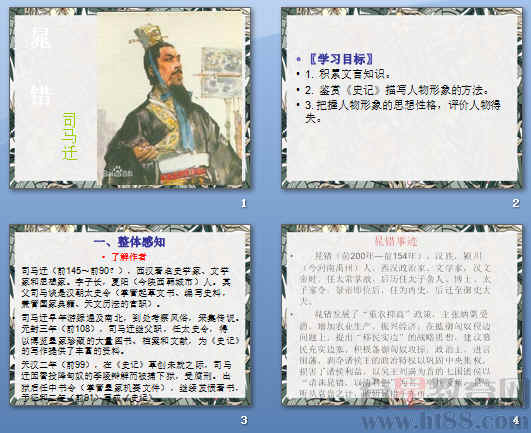 晁
错
司马迁
1
〖学习目标〗
1. 积累文言知识。
2. 鉴赏《史记》描写人物形象的方法。
3. 把握人物形象的思想性格，评价人物得
失。
2
一、整体感知
了解作者
司马迁（前145～前90？），西汉著名史学家、文学
家和思想家。李子长，夏阳（今陕西韩城市）人。其
父司马谈是汉朝太史令（掌管起草文书、编写史料，
兼管国家典籍、天文历法的官职）。
司马迁早年游踪遍及南北，到处考察风俗，采集传说。
元封三年（前108），司马迁继父职，任太史令，得
以博览皇家珍藏的大量图书、档案和文献，为《史记》
的写作提供了丰富的资料。
天汉二年（前99），在《史记》草创未就之际，司马
迁因替投降匈奴的李陵辩解而被捕下狱，受腐刑。出
狱后任中书令（掌管皇家机要文件），继续发愤著书，
3
晁错事迹
晁错（前200年—前154年），汉族，颍川
（今河南禹州）人，西汉政治家、文学家，汉文
帝时，任太常掌故，后历任太子舍人、博士、太
子家令；景帝即位后，任为内史，后迁至御史大
夫。
晁错发展了“重农抑商”政策，主张纳粟受
爵，增加农业生产，振兴经济；在抵御匈奴侵边
问题上，提出“移民实边”的战略思想，建议募
民充实边塞，积极备御匈奴攻掠；政治上，进言
削藩，剥夺诸侯王的政治特权以巩固中央集权，
损害了诸侯利益，以吴王刘濞为首的七国诸侯以
4
教育网
www.ht88.com